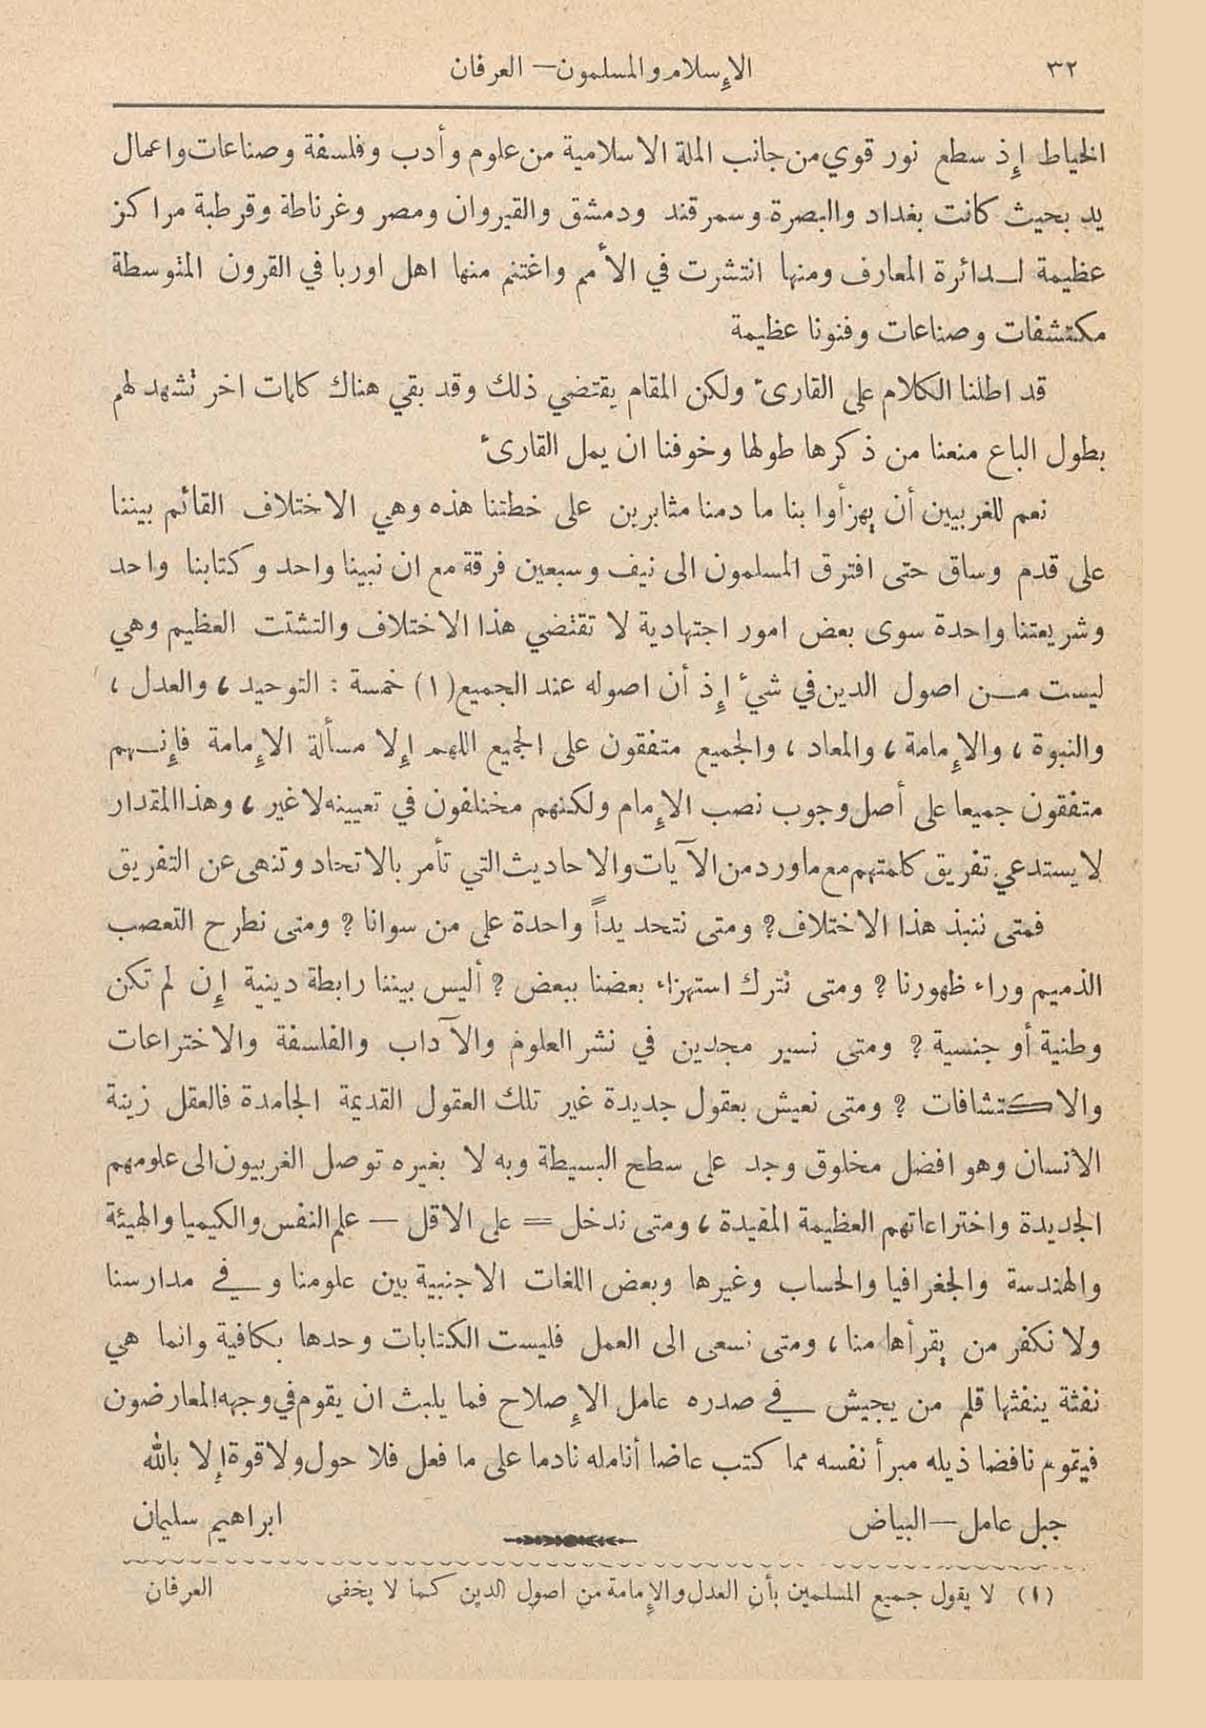 ٣٢
الإسلام والمسلمون — العرفان
الخياط إذ سطع نور قوي من جانب الملة الاسلامية من علوم وأدب وفلسفة وصناعات واعمال
يد بحيث كانت بغداد والبصرة وسمرقند ودمشق والقيروان ومصر وغرناطة وقرطبة مراكز
عظيمة لدائرة المعارف ومنها انتشرت في الأمم واغتنم منها اهل اوربا في القرون المتوسطة
مكتشفات وصناعات وفنونا عظيمة
قد اطلنا الكلام على القارئ ولكن المقام يقتضي ذلك وقد بقي هناك كلمات اخر تشهد لهم
بطول الباع منعنا من ذكرها طولها وخوفنا ان يمل القارئ
نعم للغربيين أن يهزأوا بنا ما دمنا مثابرين على خطتنا هذه وهي الاختلاف القائم بيننا
على قدم وساق حتى افترق المسلمون الى نيف وسبعين فرقة مع ان نبينا واحد وكتابنا واحد
وشريعتنا واحدة سوى بعض امور اجتهادية لا تقتضي هذا الاختلاف والتشتت العظيم وهي
ليست من اصول الدين في شيء إذ أن اصوله عند الجميع (١) خمسة : التوحيد ، والعدل ،
والنبوة ، والإمامة ، والمعاد ، والجميع متفقون على الجميع اللهم إلا مسألة الإمامة فإنهم
متفقون جميعا على أصل وجوب نصب الإمام ولكنهم مختلفون في تعيينه لا غير ، وهذا المقدار
لا يستدعي تفريق كلمتهم مع ماورد من الآيات والاحاديث التي تأمر بالاتحاد وتنهى عن التفريق
فمتى ننبذ هذا الاختلاف ؟ ومتى نتحد يداً واحدة على من سوانا ؟ ومتى نطرح التعصب
الذميم وراء ظهورنا ؟ ومتى نترك استهزاء بعضنا ببعض ؟ أليس بيننا رابطة دينية إن لم تكن
وطنية أو جنسية ؟ ومتى نسير مجدين في نشر العلوم والآداب والفلسفة والاختراعات
والاكتشافات ؟ ومتى نعيش بعقول جديدة غير تلك العقول القديمة الجامدة فالعقل زينة
الانسان وهو افضل مخلوق وجد على سطح البسيطة وبه لا بغيره توصل الغربيون الى علومهم
الجديدة واختراعاتهم العظيمة المفيدة ، ومتى ندخل = على الاقل — علم النفس والكيميا والهيئة
والهندسة والجغرافيا والحساب وغيرها وبعض اللغات الاجنبية بين علومنا وفي مدارسنا
ولا نكفر من يقرأها منا ، ومتى نسعى الى العمل فليست الكتابات وحدها بكافية وانما هي
نفثة ينفثها قلم من يجيش في صدره عامل الإصلاح فما يلبث ان يقوم في وجهه المعارضون
فيقوم نافضا ذيله مبرأ نفسه مما كتب عاضا أنامله نادما على ما فعل فلا حول ولا قوة إلا بالله
جبل عامل — البياض ابراهيم سليمان
(١) لا يقول جميع المسلمين بأن العدل والإمامة من اصول الدين كما لا يخفى العرفان